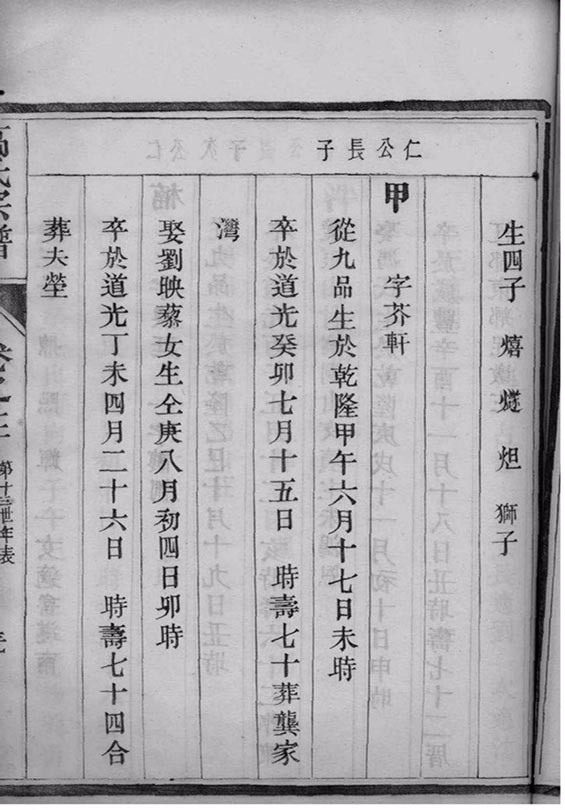 生四子 熺 燧 炟 獅子
仁公長子
甲 字芥軒
從九品生於乾隆甲午六月十七日未時
卒於道光癸卯七月十五日 時壽七十葬龔家
灣
娶劉映藜女生仝庚八月初四日卯時
卒於道光丁未四月二十六日 時壽七十四合
葬夫塋
氏宗譜
卷之
第十三世年表